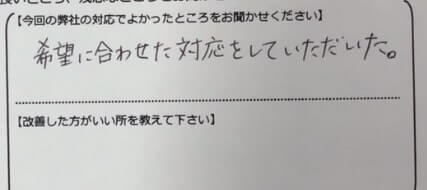 【今回の弊社の対応でよかったところをお聞かせください】
希望に合わせた対応をしていただいた。
【改善した方がいい所を教えて下さい】